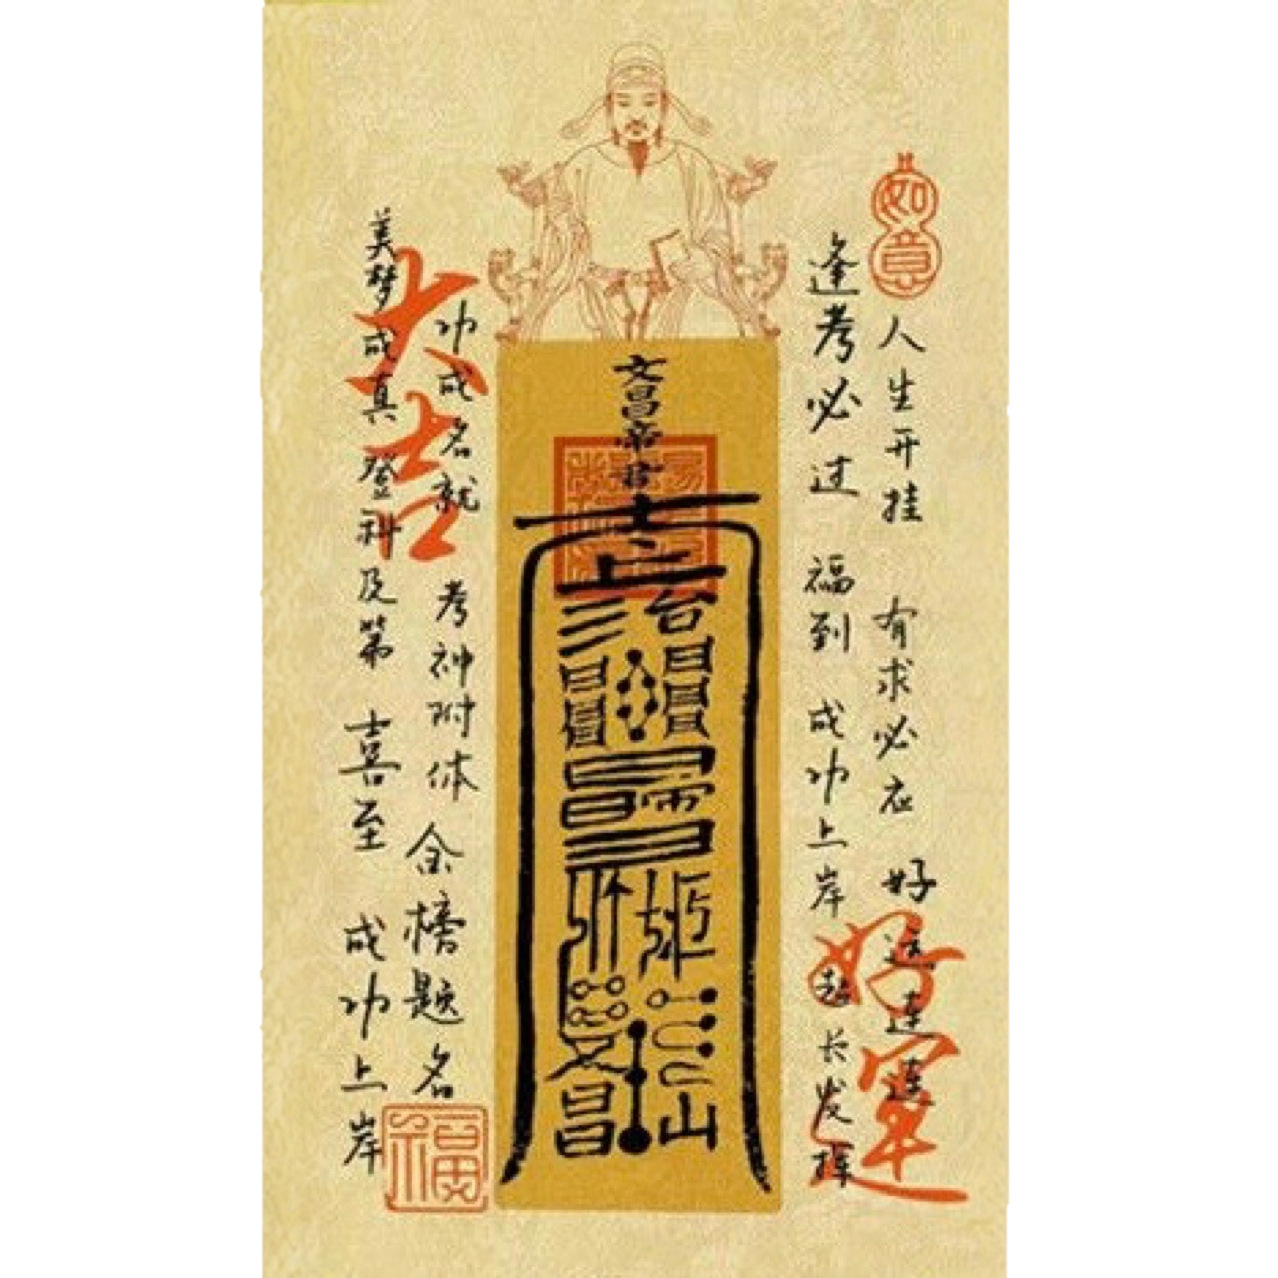 如意
人生开挂 有求必应 好运连连连
逢考必过 福到 成功上岸 超长发挥
好運
文昌帝君
台
文昌
山
大吉
功成名就 考神附体 金榜题名
美梦成真 登科及第 喜至 成功上岸
福